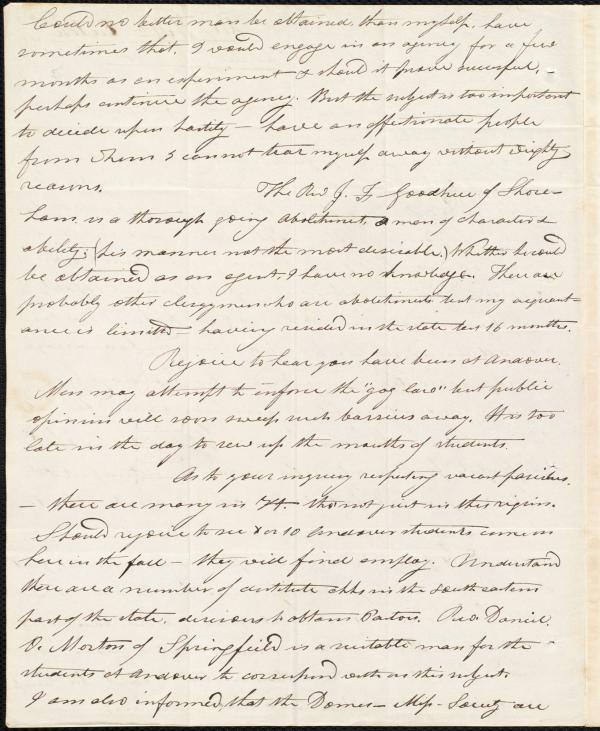 Could no better man be obtained than myself, have
sometimes tho't I would engage in an agency for a few
months as an experiment & should it prove successful, -
perhaps continue the agency. But the subject is too important
to decide upon hastily - have an affectionate people
from whom I cannot tear myself away without weighty
reasons. The Rev J. F. Goodhue of Shore-
ham is a thorough going abolitionist, a man of character &
ability; (his manner not the most desirable.) Whether he could
be obtained as an agent, I have no knowledge. There are
probably other clergymen who are abolitionists but my acquaint-
ance is limited - having resided in the state but 16 months.
Rejoice to hear you have been at Andover.
Men may attempt to enforce the "gag law" but public
opinion will soon sweep such barriers away. It is too
late in the day to sew up the mouths of students.
As to your inquiry respecting vacant parishes,
- there are many in Vt. tho not just in this region.
Should rejoice to see 8 or 10 Andover students come in
here in the fall - they will find employ. Understand
there are a number of destitute chhs in the south eastern
part of the state, desirous to obtain Pastors. Rev. Daniel
O. Morton of Springfield is a suitable man for the
students at Andover to correspond with on this subject.
I am also informed, that the Domes- Miss- Society are